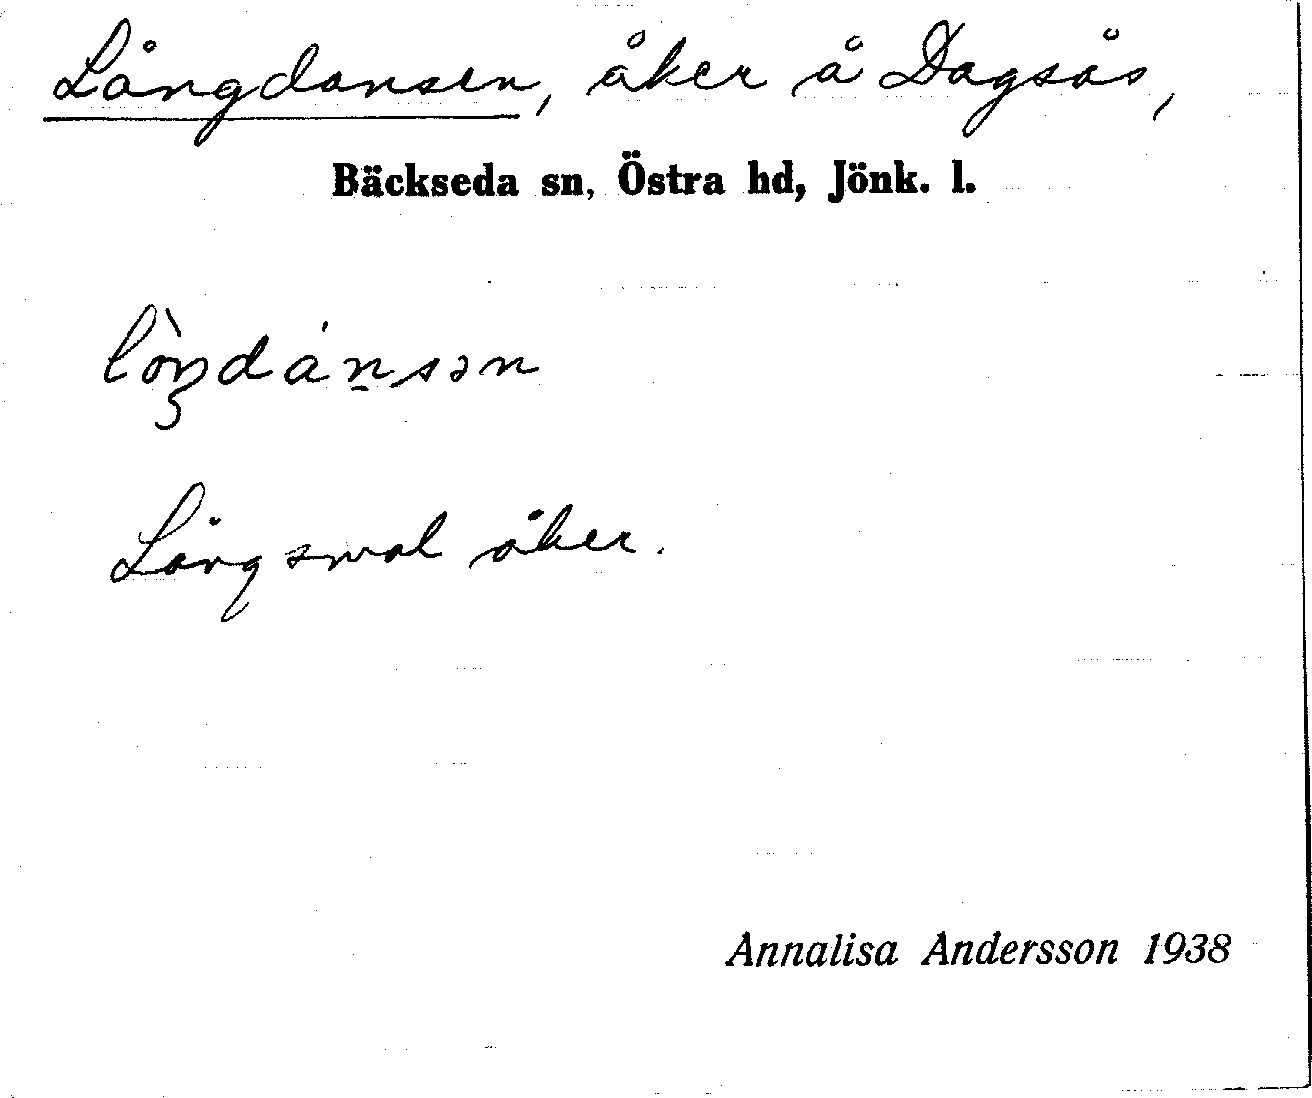 Långdansen, åker å Dagsås,
Bäckseda sn, Östra hd, Jönk. l.
lòŋdánsən
Långsmal åker.
Annalisa Andersson 1938